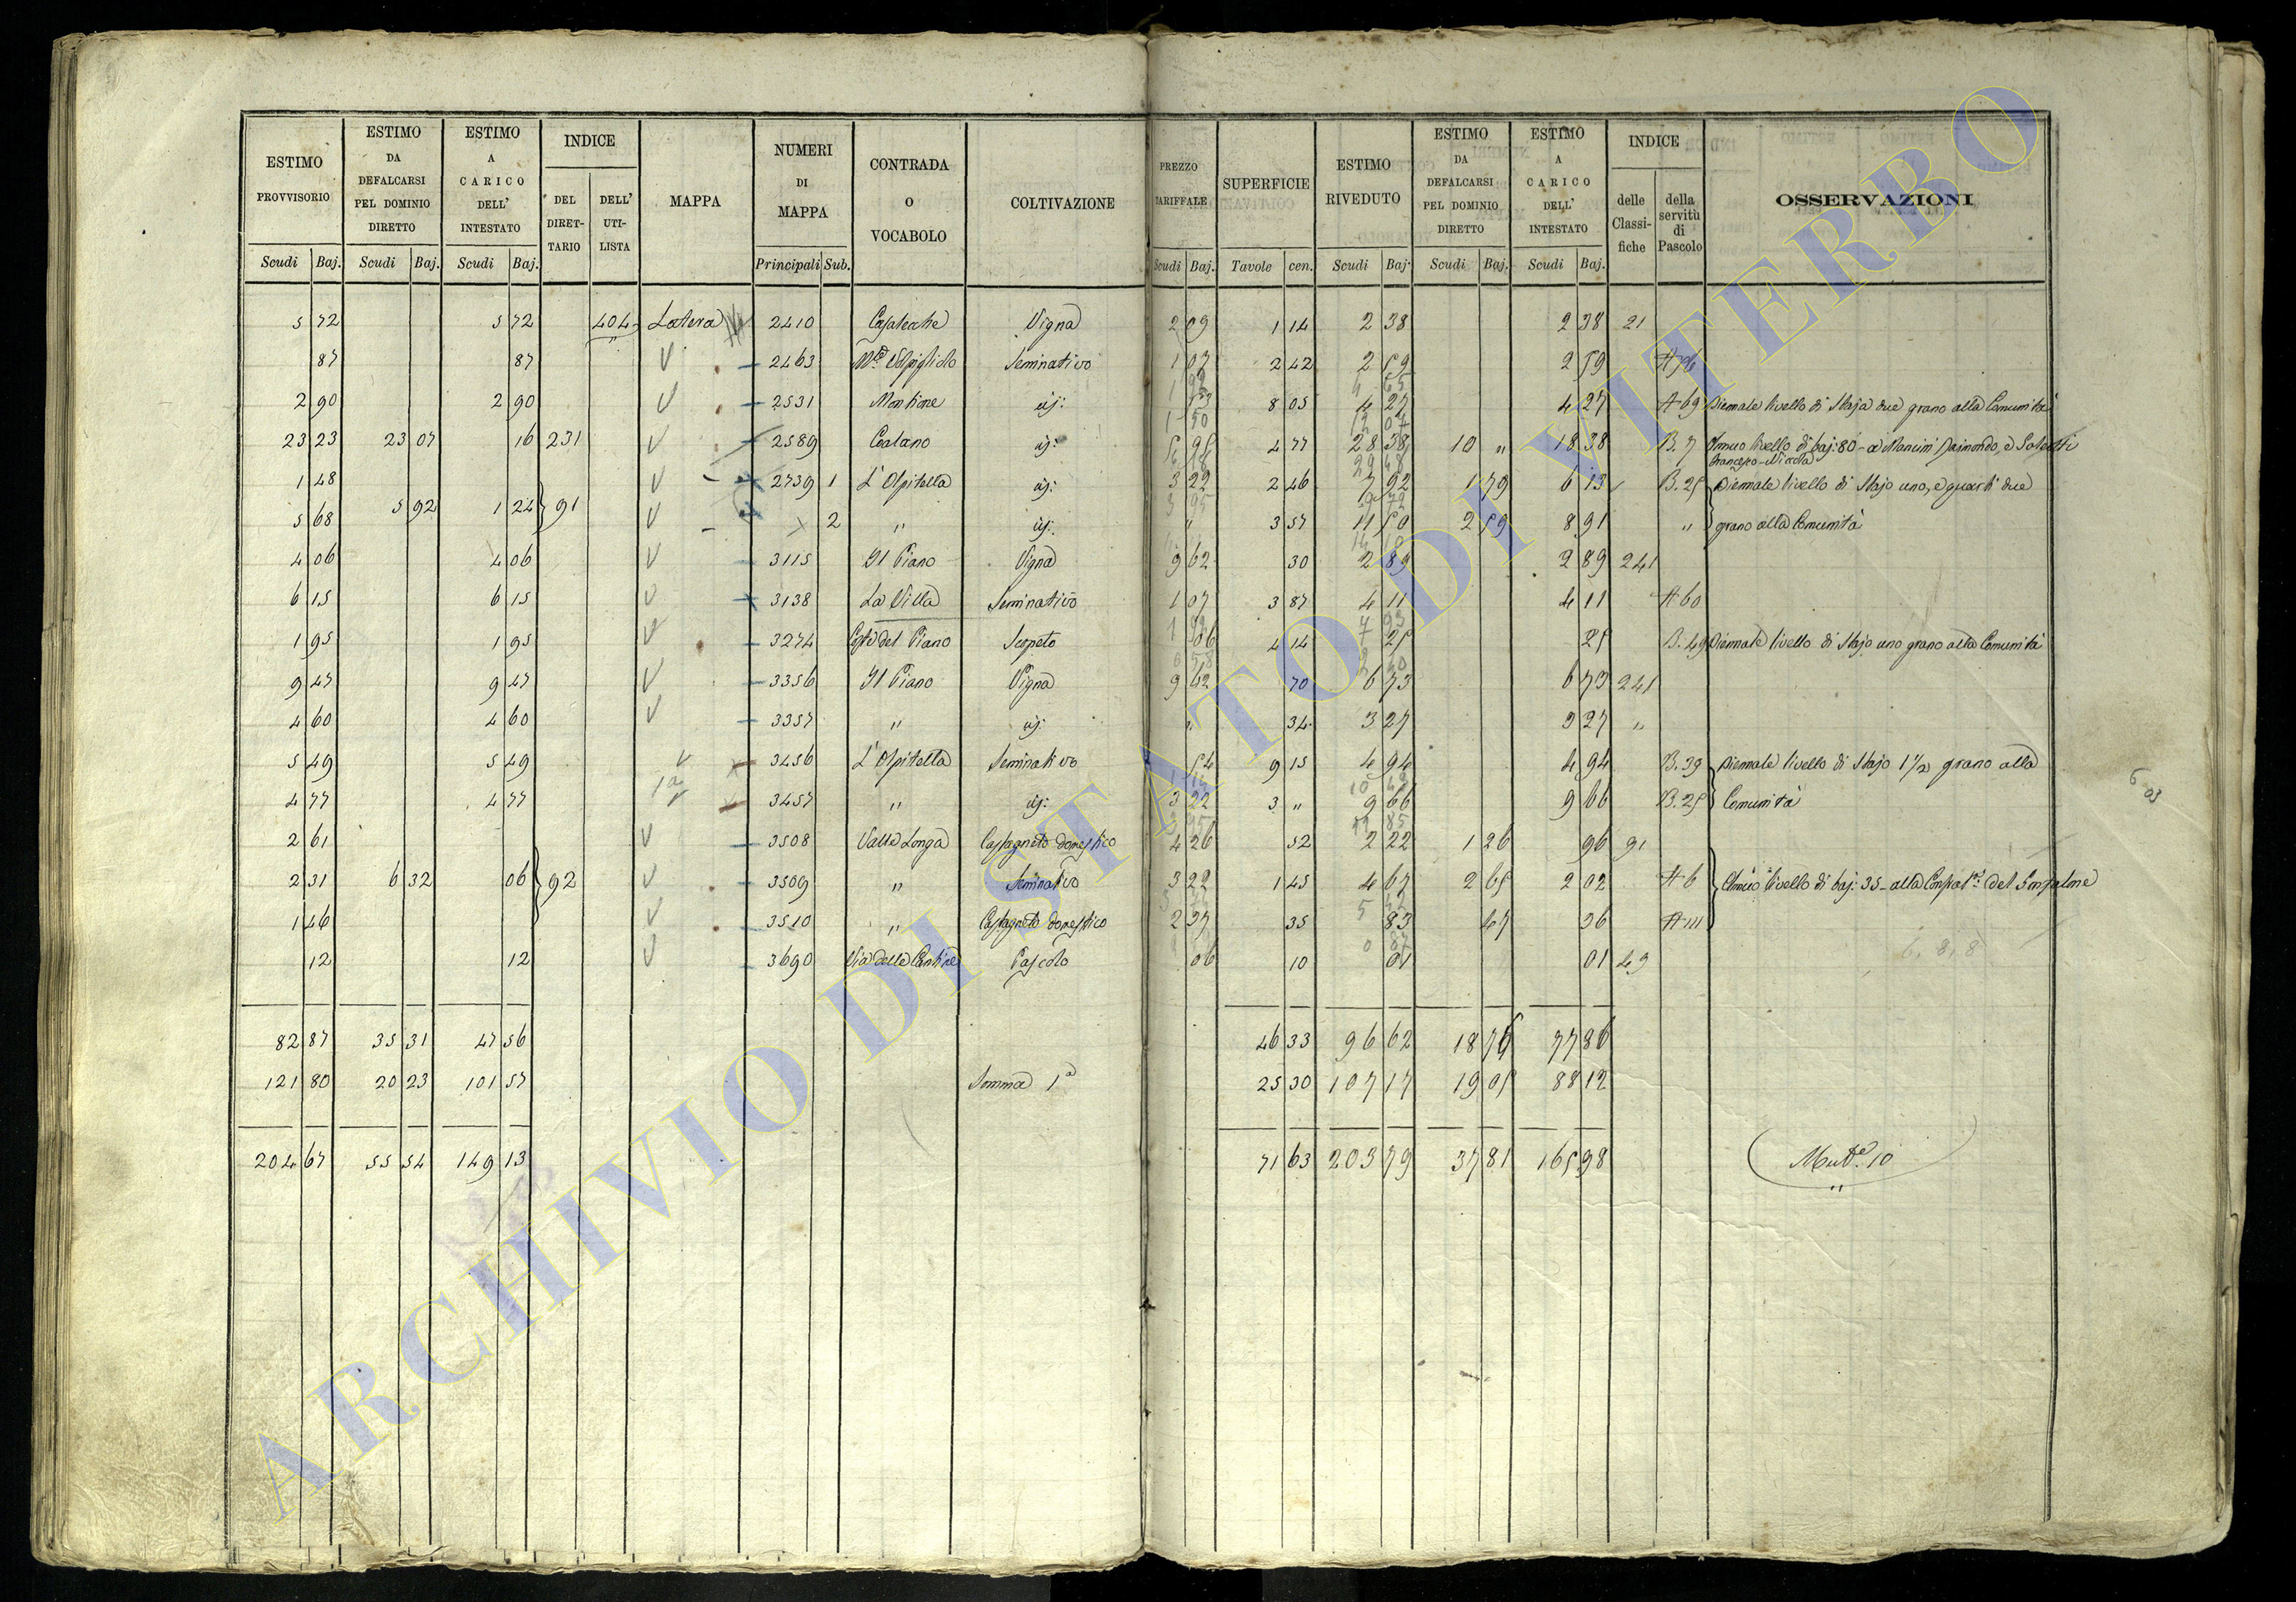 ESTIMO PROVVISORIO | ESTIMO DA DEFALCARSI PEL DOMINIO DIRETTO | ESTIMO A CARICO DELL' INTESTATO | INDICE | MAPPA | NUMERI DI MAPPA | CONTRADA O VOCABOLO | COLTIVAZIONE | PREZZO TARIFFALE | SUPERFICIE | ESTIMO RIVEDUTO | ESTIMO DA DEFALCARSI PEL DOMINIO DIRETTO | ESTIMO A CARICO DELL' INTESTATO | INDICE | OSSERVAZIONI
DEL DIRET-TARIO | DELL' UTI-LISTA | delle Classi-fiche | della servitù di Pascolo
Scudi | Baj. | Scudi | Baj. | Scudi | Baj. | Principali | Sub. | Scudi | Baj. | Tavole | cen. | Scudi | Baj. | Scudi | Baj. | Scudi | Baj.
5 72 | 5 72 | 404 | Latera | 2410 | Vigna | 2 09 | 1 14 | 2 38 | 2 38 | 21
87 | 87 | 2463 | Seminativo | 1 07 | 2 42 | 2 59 | 2 59
2 90 | 2 90 | 2531 | Montione | 8 05 | 4 27 | 4 27 | A 69 | Biennale livello di Staja due grano alla Comunità
23 23 | 23 07 | 16 | 231 | 2589 | 5 95 | 4 77 | 28 38 | 10 " | 18 38 | B. 7 | Annuo livello di baj: 80 - a Mancini Raimondo, e
Francesco - Nicola
1 48 | 2739 | 1 | L'Ospitella | 3 22 | 2 46 | 7 92 | 1 79 | 6 13 | B. 25 | Biennale livello di Stajo uno, e quarti due
5 68 | 5 92 | 1 24 | 91 | 2 | " | " | 3 57 | 11 50 | 2 59 | 8 91 | " | grano alla Comunità
4 06 | 4 06 | 3115 | Il Piano | Vigna | 9 62 | 30 | 2 89 | 2 89 | 241
6 15 | 6 15 | 3138 | La Villa | Seminativo | 1 07 | 3 87 | 4 11 | 4 11 | A 60
1 95 | 1 95 | 3274 | Costa del Piano | Scopeto | 06 | 4 14 | 25 | 25 | B. 49 | Biennale livello di Stajo uno grano alla Comunità
9 47 | 9 47 | 3356 | Il Piano | Vigna | 9 62 | 70 | 6 73 | 6 73 | 241
4 60 | 4 60 | 3357 | " | " | 34 | 3 27 | 3 27 | "
5 49 | 5 49 | 3456 | L'Ospitella | Seminativo | 54 | 9 15 | 4 94 | 4 94 | B. 39 | Biennale livello di Stajo 1 1/2 grano alla
4 77 | 4 77 | 3457 | " | 3 22 | 3 " | 9 66 | 9 66 | B. 25 | Comunità
2 61 | 3508 | Valle Longa | Castagneto domestico | 4 26 | 52 | 2 22 | 1 26 | 96 | 91
2 31 | 6 32 | 06 | 92 | 3509 | " | Seminativo | 3 22 | 1 45 | 4 67 | 2 65 | 2 02 | A 6 | Annuo livello di baj: 35 - alla del Gonfalone
1 46 | 3510 | " | Castagneto domestico | 2 37 | 35 | 83 | 47 | 36 | A 111
12 | 12 | 3690 | Via delle Cantine | Pascolo | 06 | 10 | 01 | 01 | 49
82 87 | 35 31 | 47 56 | 46 33 | 96 62 | 18 76 | 77 86
121 80 | 20 23 | 101 57 | Somma 1ª | 25 30 | 107 17 | 19 05 | 88 12
204 67 | 55 54 | 149 13 | 71 63 | 203 79 | 37 81 | 165 98
10
ARCHIVIO DI STATO DI VITERBO